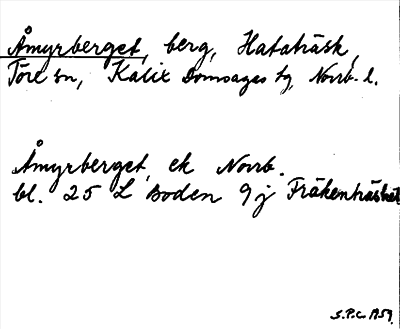 Åmyrberget, berg, Hataträsk,
Töre sn, Kalix Domsagas tg, Norrb. l.
Åmyrberget, ek Norrb.
bl. 25 L Boden 9 j Fräkenträsket
S.P.C. 1959